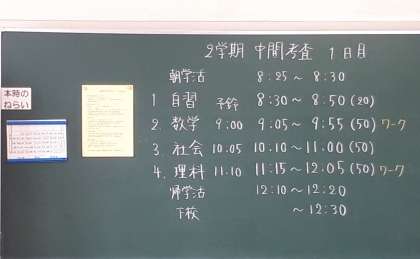 2学期 中間考査 1日目
朝学活 8:25～8:30
1 自習 予鈴 8:30～8:50(20)
2. 数学 9:00 9:05～9:55(50) ワーク
3. 社会 10:05 10:10～11:00(50)
4. 理科 11:10 11:15～12:05(50) ワーク
帰学活 12:10～12:20
下校 ～12:30
本時の
ねらい